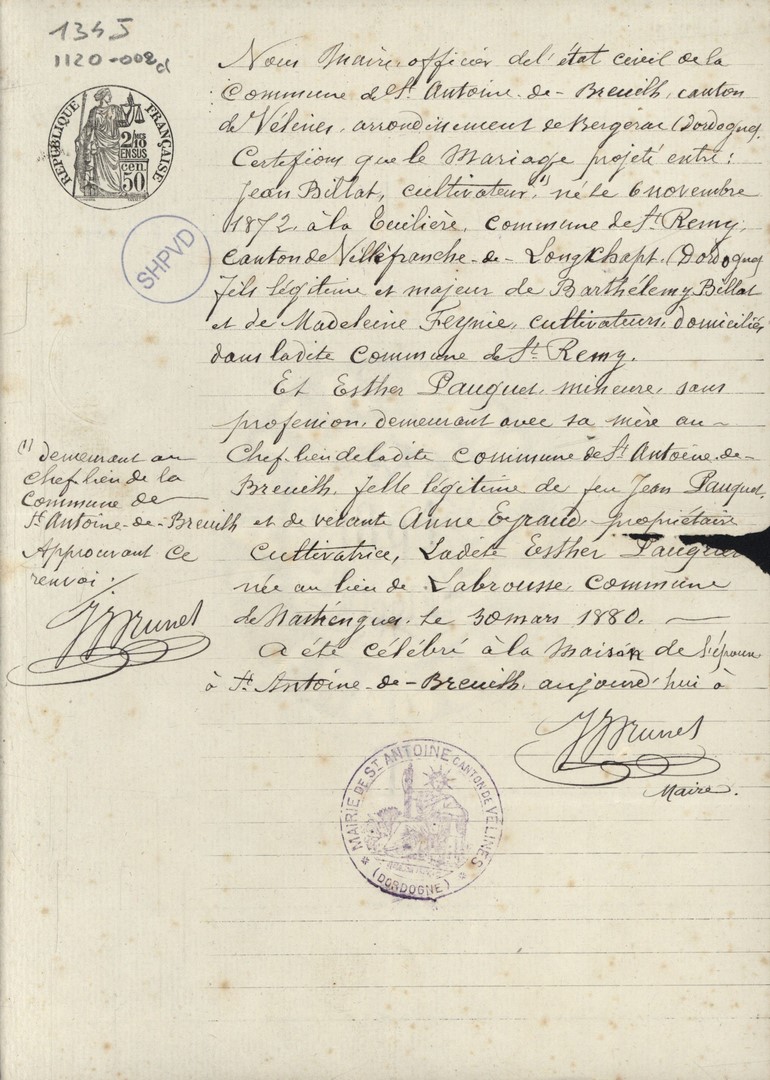 1345
1120-002
RÉPUBLIQUE FRANÇAISE
2/10
EN SUS
cen.
50
SHPVD
Nous Maire, officier de l'état civil de la
Commune de St Antoine-de-Breuilh, canton
de Vélines, arrondissement de Bergerac (Dordogne)
Certifions que le Mariage projeté entre:
Jean Billat, cultivateur, (1) né le 6 novembre
1872, à la Tuilière, commune de St Remy,
canton de Villefranche-de-Longchapt. (Dordogne)
fils légitime et majeur de Barthélemy Billat
et de Madeleine Feynie, cultivateurs, domiciliés
dans ladite Commune de St Remy.
Et Esther Pauquet, mineure, sans
profession, demeurant avec sa mère au
Chef-lieu de ladite commune de St Antoine-de-
Breuilh, fille légitime de feu Jean Pauquet,
et de vivante Anne Eyraud, propriétaire
Cultivatrice, Ladite Esther Pauquet
née au lieu de Labrousse, commune
de le 30 mars 1880.
A été célébré à la maison de l'épouse
à St Antoine-de-Breuilh, aujourd'hui à
(1) demeurant au
Chef-lieu de la
Commune de
St Antoine-de-Breuilh
Approuvant ce
renvoi:
Brunet
Brunet
Maire.
MAIRIE DE ST ANTOINE CANTON DE VÉLINES
(DORDOGNE)